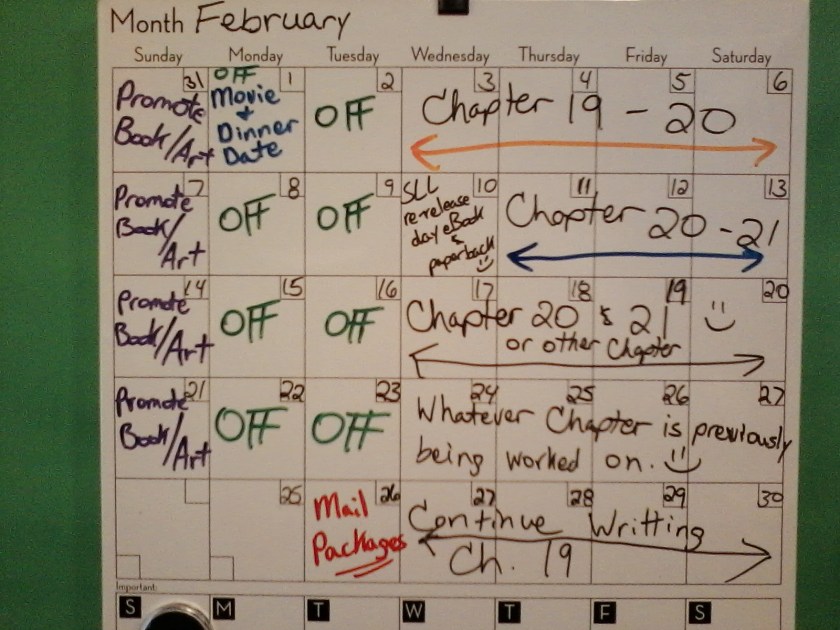 Month February
Sunday Monday Tuesday Wednesday Thursday Friday Saturday
31 1 2 3 4 5 6
Promote
Book/Art
OFF
Movie
+
Dinner
Date
OFF
Chapter 19 - 20
7 8 9 10 11 12 13
Promote
Book/
Art
OFF
OFF
SLL
re-release
day eBook
&
paperback
Chapter 20 - 21
14 15 16 17 18 19 20
Promote
Book/Art
OFF
OFF
Chapter 20 & 21
or other Chapter
21 22 23 24 25 26 27
Promote
Book/
Art
OFF
OFF
Whatever Chapter is previously
being worked on.
25 26 27 28 29 30
Mail
Packages
Continue Writting
Ch. 19
Important:
S M T W T F S